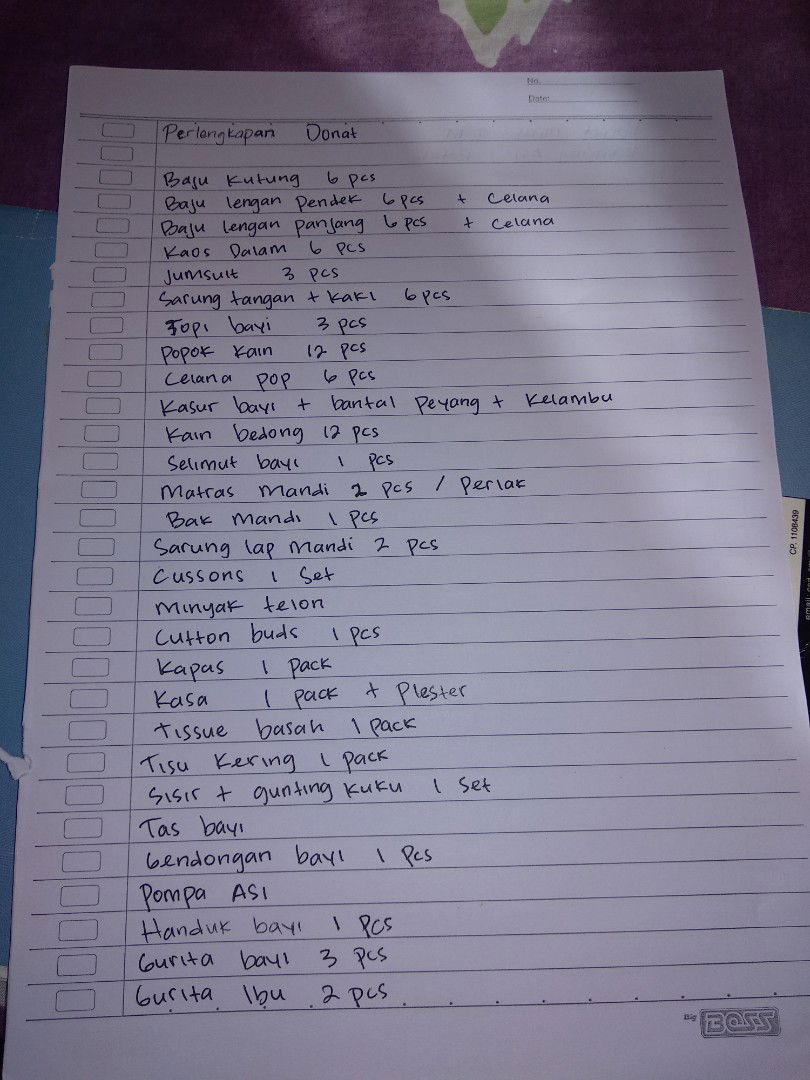 No.
Date:
Perlengkapan Donat
Baju Kutung 6 pcs
Baju lengan Pendek 6 pcs + Celana
Baju lengan panjang 6 pcs + Celana
Kaos Dalam 6 pcs
Jumsuit 3 pcs
Sarung tangan + kaki 6 pcs
Topi bayi 3 pcs
Popok kain 12 pcs
Celana pop 6 pcs
Kasur bayi + bantal Peyang + Kelambu
Kain bedong 12 pcs
Selimut bayi 1 pcs
Matras Mandi 2 pcs / Perlak
Bak Mandi 1 pcs
Sarung lap Mandi 2 pcs
Cussons 1 Set
Minyak telon
Cutton buds 1 pcs
Kapas 1 pack
Kasa 1 pack + Plester
Tissue basah 1 pack
Tisu Kering 1 pack
Sisir + gunting kuku 1 set
Tas bayi
Gendongan bayi 1 pcs
Pompa ASI
Handuk bayi 1 pcs
Gurita bayi 3 pcs
Gurita Ibu 2 pcs
Big BOSS
CP. 1108439